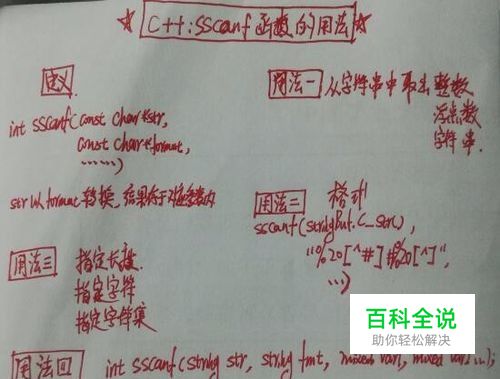 ☆ C++:sscanf函数的用法 ☆
定义
int sscanf(const char *str,
const char *format,
......)
str以format转换,结果存于对应参数内
用法一 从字符串中取出整数
浮点数
字符串.
用法二 格式
sscanf(stringBuf.C_str(),
"%20[^#]#%20[^]",
...)
用法三 指定长度.
指定字符
指定字符集
百科全说
助你轻松解决
用法四 int sscanf(string str, string fmt, mixed var1, mixed var2...);